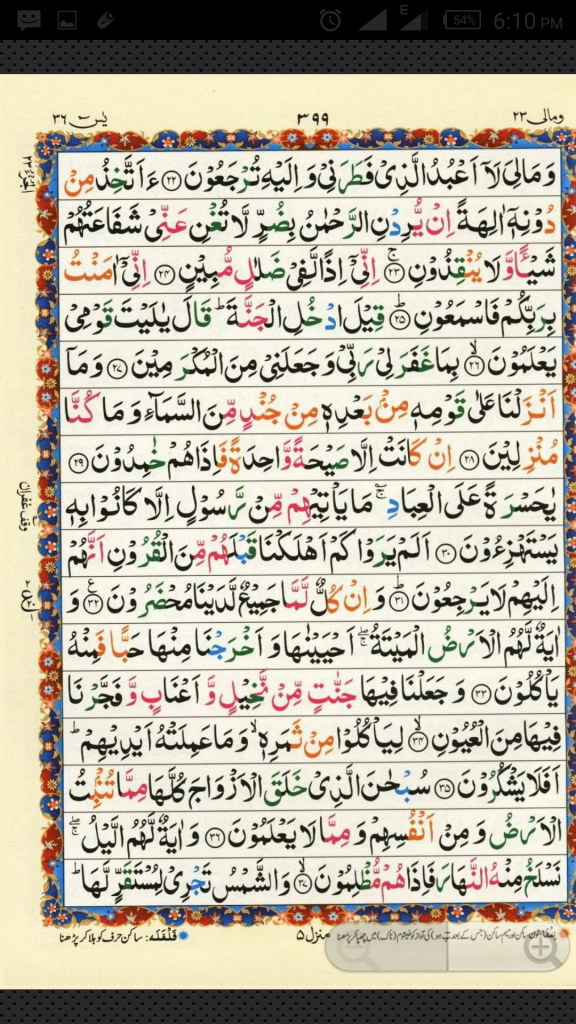 E 54% 6:10 PM
ومالی ۲۳
۳۹۹
یٰسٓ ۳۶
وَ مَا لِیَ لَاۤ اَعْبُدُ الَّذِیْ فَطَرَنِیْ وَ اِلَیْهِ تُرْجَعُوْنَ ﴿۲۲﴾ ءَ اَتَّخِذُ مِنْ
دُوْنِهٖۤ اٰلِهَةً اِنْ یُّرِدْنِ الرَّحْمٰنُ بِضُرٍّ لَّا تُغْنِ عَنِّیْ شَفَاعَتُهُمْ
شَیْـًٔا وَّ لَا یُنْقِذُوْنِ ۚ﴿۲۳﴾ اِنِّیْۤ اِذًا لَّفِیْ ضَلٰلٍ مُّبِیْنٍ ﴿۲۴﴾ اِنِّیْۤ اٰمَنْتُ
بِرَبِّكُمْ فَاسْمَعُوْنِ ؕ﴿۲۵﴾ قِیْلَ ادْخُلِ الْجَنَّةَ ؕ قَالَ یٰلَیْتَ قَوْمِیْ
یَعْلَمُوْنَ ۙ﴿۲۶﴾ بِمَا غَفَرَ لِیْ رَبِّیْ وَ جَعَلَنِیْ مِنَ الْمُكْرَمِیْنَ ﴿۲۷﴾ وَ مَاۤ
اَنْزَلْنَا عَلٰی قَوْمِهٖ مِنْۢ بَعْدِهٖ مِنْ جُنْدٍ مِّنَ السَّمَآءِ وَ مَا كُنَّا
مُنْزِلِیْنَ ﴿۲۸﴾ اِنْ كَانَتْ اِلَّا صَیْحَةً وَّاحِدَةً فَاِذَا هُمْ خٰمِدُوْنَ ﴿۲۹﴾
یٰحَسْرَةً عَلَی الْعِبَادِ ۚؔ مَا یَاْتِیْهِمْ مِّنْ رَّسُوْلٍ اِلَّا كَانُوْا بِهٖ
یَسْتَهْزِءُوْنَ ﴿۳۰﴾ اَلَمْ یَرَوْا كَمْ اَهْلَكْنَا قَبْلَهُمْ مِّنَ الْقُرُوْنِ اَنَّهُمْ
اِلَیْهِمْ لَا یَرْجِعُوْنَ ؕ﴿۳۱﴾ وَ اِنْ كُلٌّ لَّمَّا جَمِیْعٌ لَّدَیْنَا مُحْضَرُوْنَ ﴿۳۲﴾ وَ
اٰیَةٌ لَّهُمُ الْاَرْضُ الْمَیْتَةُ ۚۖ اَحْیَیْنٰهَا وَ اَخْرَجْنَا مِنْهَا حَبًّا فَمِنْهُ
یَاْكُلُوْنَ ﴿۳۳﴾ وَ جَعَلْنَا فِیْهَا جَنّٰتٍ مِّنْ نَّخِیْلٍ وَّ اَعْنَابٍ وَّ فَجَّرْنَا
فِیْهَا مِنَ الْعُیُوْنِ ۙ﴿۳۴﴾ لِیَاْكُلُوْا مِنْ ثَمَرِهٖ ۙ وَ مَا عَمِلَتْهُ اَیْدِیْهِمْ ؕ
اَفَلَا یَشْكُرُوْنَ ﴿۳۵﴾ سُبْحٰنَ الَّذِیْ خَلَقَ الْاَزْوَاجَ كُلَّهَا مِمَّا تُنْۢبِتُ
الْاَرْضُ وَ مِنْ اَنْفُسِهِمْ وَ مِمَّا لَا یَعْلَمُوْنَ ﴿۳۶﴾ وَ اٰیَةٌ لَّهُمُ الَّیْلُ ۚۖ
نَسْلَخُ مِنْهُ النَّهَارَ فَاِذَا هُمْ مُّظْلِمُوْنَ ۙ﴿۳۷﴾ وَ الشَّمْسُ تَجْرِیْ لِمُسْتَقَرٍّ لَّهَا ؕ
وقف غفران
منزل ۵
قلقلہ: ساکن حرف کو ہلا کر پڑھنا